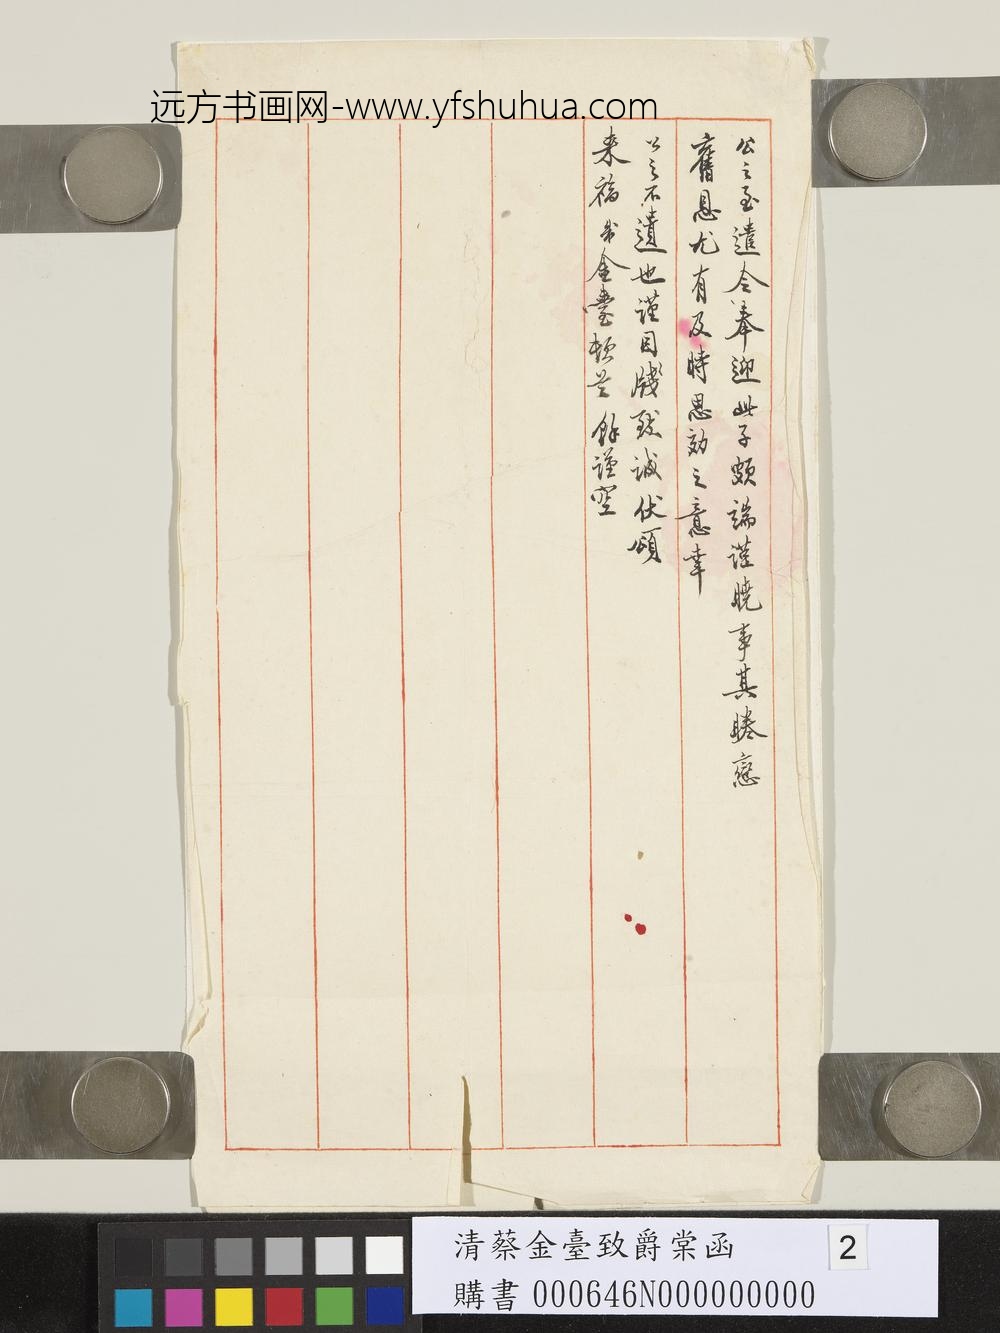 远方书画网-www.yfshuhua.com
公之至遣令奉迎此子頗端謹曉事其睠戀
舊恩尤有及時思効之意幸
公之不遺也謹因牋致誠伏頌
来福 弟金臺頓首 餘謹空
清蔡金臺致爵棠函
2
購書 000646N000000000